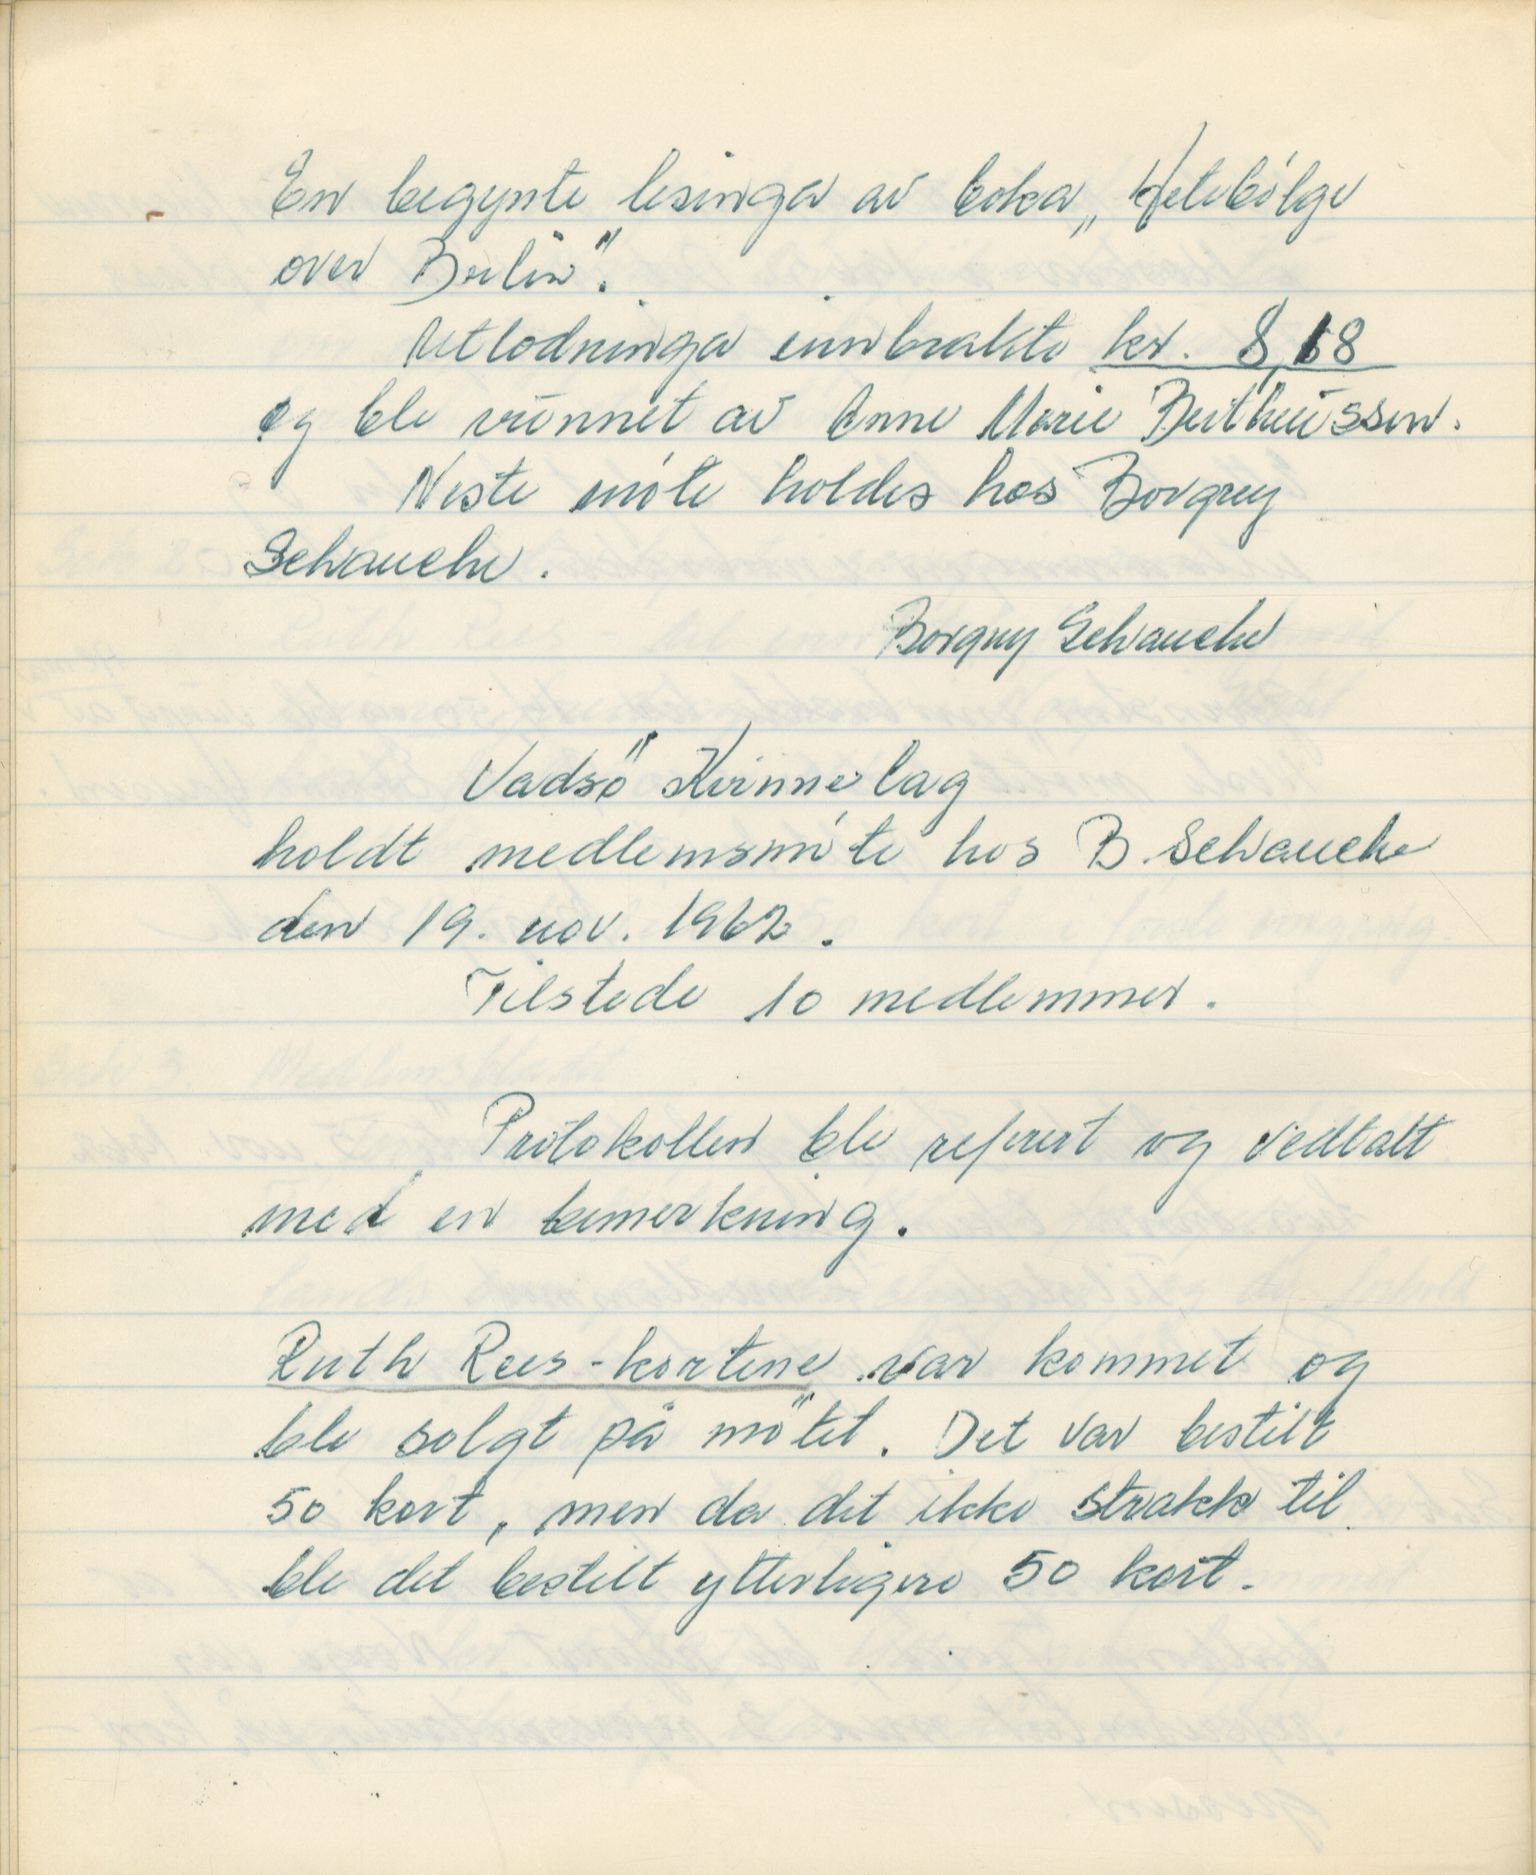 En begynte lesinga av boka „Hetebølge
over Berlin".
Utlodninga innbrakte kr. 8,68
og ble vunnet av Anne Marie Bertheussen.
Neste møte holdes hos Borgny
Schanche.
Borgny Schanche
Vadsø Kvinnelag
holdt medlemsmøte hos B. Schanche
den 19. nov. 1962.
Tilstede 10 medlemmer.
Protokollen ble referert og vedtatt
med en bemerkning.
Ruth Rees-kortene var kommet og
ble solgt på møtet. Det var bestilt
50 kort, men da det ikke strakk til
ble det bestilt ytterligere 50 kort.